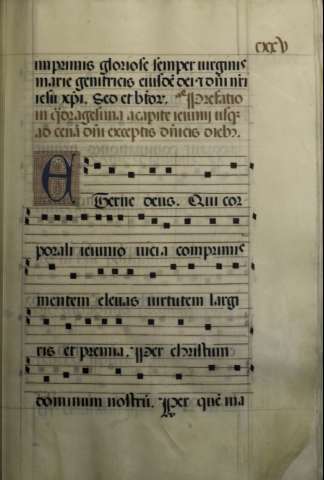 cxxv
imprimis gloriose semper uirginis
marie genitricis eiusdē dei ⁊ dñi nr̄i
iesu xp̄i. Sed et btōr. Prefatio
in q̄dragesima a capite ieiunij usq̄
ad cenā dn̄i exceptis dn̄icis dieb⁊.
Eterne deus. Qui cor
porali ieiunio uicia comprimis
mentem eleuas uirtutem largi
ris et premia. Per christum
dominum nostrū. Per quē ma